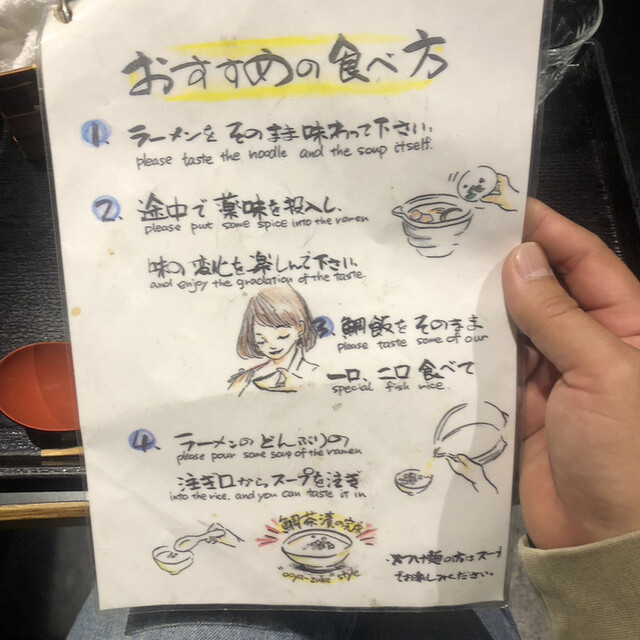 おすすめの食べ方
1. ラーメンをそのまま味わって下さい
please taste the noodle and the soup itself.
2. 途中で薬味を投入し、
please put some spice into the ramen
味の変化を楽しんで下さい
and enjoy the gradation of the taste
3. 鯛飯をそのまま
please taste some of our
一口 二口 食べて
special fish rice.
4. ラーメンのどんぶりの
please pour some soup of the ramen
注ぎ口からスープを注ぎ
into the rice, and you can taste it in
鯛茶漬の完成
"ocya-zuke" style
※つけ麺の方はスー
でお楽しみください。